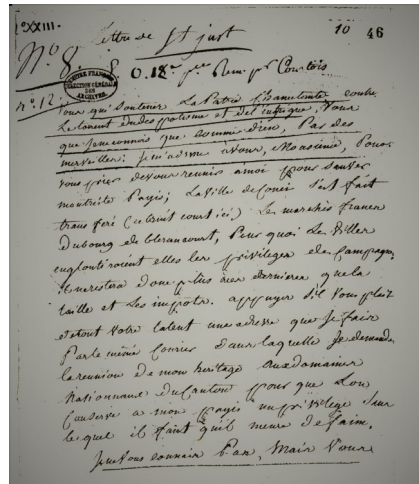 n°XXIII.
Lettre de St just
10 46
N° 8. 8 0.18e pce Rem. pr Courtois
n° 12.
CHAMBRE FRANÇAISE
DIRECTION GÉNÉRALE
DES
ARCHIVES
Vous qui Soutenez La Patrie Chancelante contre
Le torrent du despotisme et de l'intrigue, Vous
que je ne connois que comme dieu, Par des
merveilles; je m'adresse a Vous, Monsieur, Pour
vous prier de vous reunir a moi pour Sauver
mon triste Pays; La Ville de Couci S'est fait
transferé (ce bruit court ici) Les marchés francs
Du bourg de blerancourt, Pour quoi Les Villes
engloutiroient elles les privileges des Campagnes
il ne restera donc plus a ces dernieres que la
taille et Les impots. appuyez S'il Vous plait
de tout Votre talent une adresse que je fais
Par le même Courier Dans laquelle je demande
la reunion de mon heritage aux domaines
Nationaux du Canton pour que Lon
Conserve a mon payis un privilege Sans
le quel il faut qu'il meure de faim.
Je ne Vous connais Pas, Mais Vous